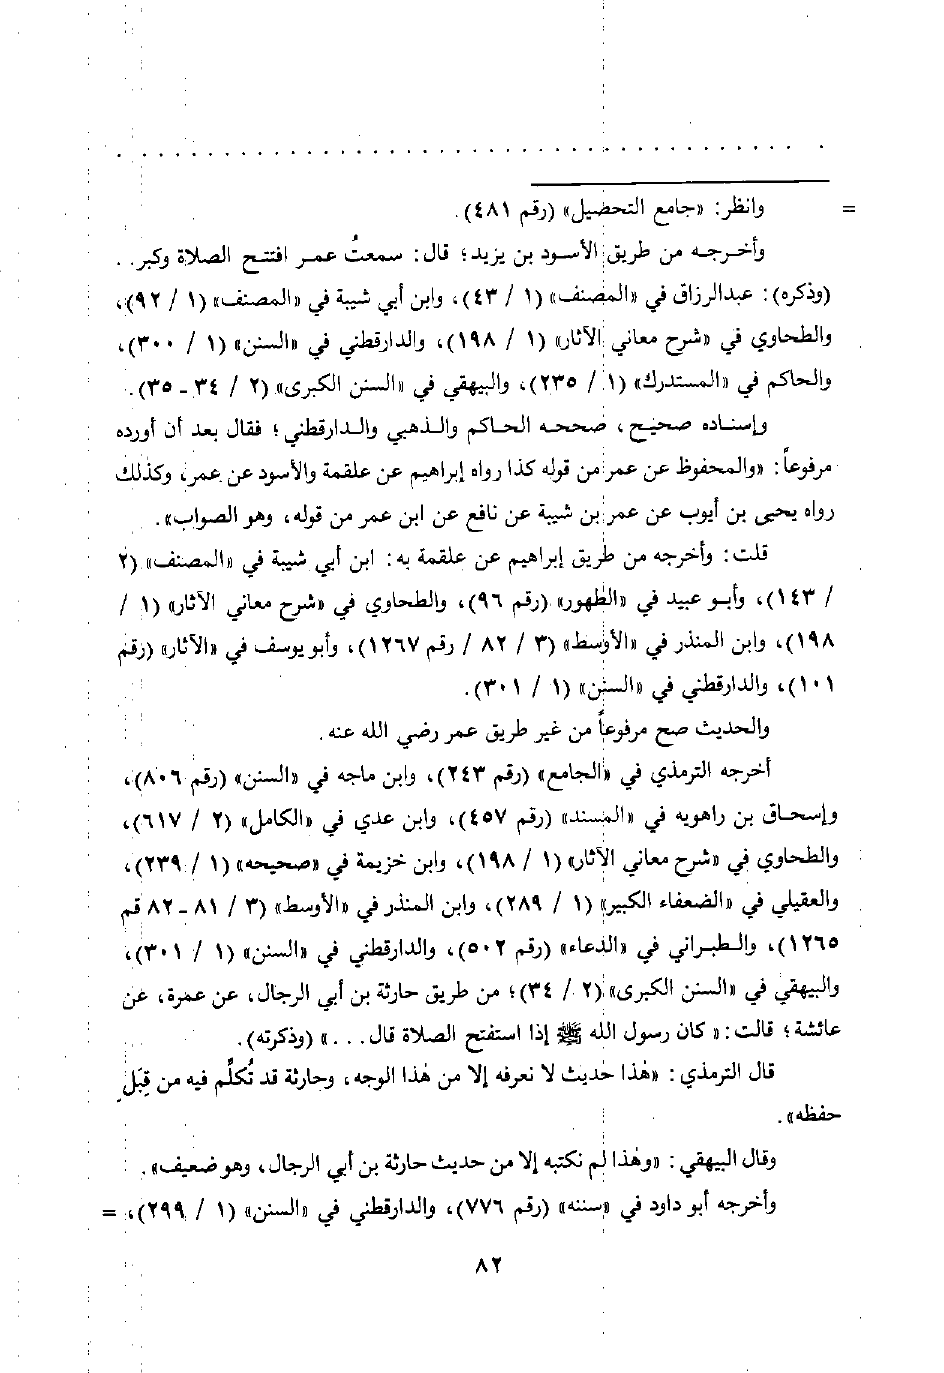 = وانظر: «جامع التحصيل» (رقم ٤٨١).
وأخرجه من طريق الأسود بن يزيد؛ قال: سمعتُ عمر افتتح الصلاة وكبر..
(وذكره): عبدالرزاق في «المصنف» (١ / ٤٣)، وابن أبي شيبة في «المصنف» (١ / ٩٢)،
والطحاوي في «شرح معاني الآثار» (١ / ١٩٨)، والدارقطني في «السنن» (١ / ٣٠٠)،
والحاكم في «المستدرك» (١ / ٢٣٥)، والبيهقي في «السنن الكبرى» (٢ / ٣٤ ـ ٣٥).
وإسناده صحيح، صححه الحاكم والذهبي والدارقطني؛ فقال بعد أن أورده
مرفوعاً: «والمحفوظ عن عمر من قوله كذا رواه إبراهيم عن علقمة والأسود عن عمر، وكذلك
رواه يحيى بن أيوب عن عمر بن شيبة عن نافع عن ابن عمر من قوله، وهو الصواب».
قلت: وأخرجه من طريق إبراهيم عن علقمة به: ابن أبي شيبة في «المصنف» (٢
/ ١٤٣)، وأبو عبيد في «الطهور» (رقم ٩٦)، والطحاوي في «شرح معاني الآثار» (١ /
١٩٨)، وابن المنذر في «الأوسط» (٣ / ٨٢ / رقم ١٢٦٧)، وأبو يوسف في «الآثار» (رقم
١٠١)، والدارقطني في «السنن» (١ / ٣٠١).
والحديث صح مرفوعاً من غير طريق عمر رضي الله عنه.
أخرجه الترمذي في «الجامع» (رقم ٢٤٣)، وابن ماجه في «السنن» (رقم ٨٠٦)،
وإسحاق بن راهويه في «المسند» (رقم ٤٥٧)، وابن عدي في «الكامل» (٢ / ٦١٧)،
والطحاوي في «شرح معاني الآثار» (١ / ١٩٨)، وابن خزيمة في «صحيحه» (١ / ٢٣٩)،
والعقيلي في «الضعفاء الكبير» (١ / ٢٨٩)، وابن المنذر في «الأوسط» (٣ / ٨١ ـ ٨٢ قم
١٢٦٥)، والطبراني في «الدعاء» (رقم ٥٠٢)، والدارقطني في «السنن» (١ / ٣٠١)،
والبيهقي في «السنن الكبرى» (٢ / ٣٤)؛ من طريق حارثة بن أبي الرجال، عن عمرة، عن
عائشة؛ قالت: «كان رسول الله ﷺ إذا استفتح الصلاة قال...» (وذكرته).
قال الترمذي: «هٰذا حديث لا نعرفه إلا من هٰذا الوجه، وحارثة قد تُكلِّم فيه من قِبَلِ
حفظه».
وقال البيهقي: «وهٰذا لم نكتبه إلا من حديث حارثة بن أبي الرجال، وهو ضعيف».
وأخرجه أبو داود في «سننه» (رقم ٧٧٦)، والدارقطني في «السنن» (١ / ٢٩٩)، =
٨٢